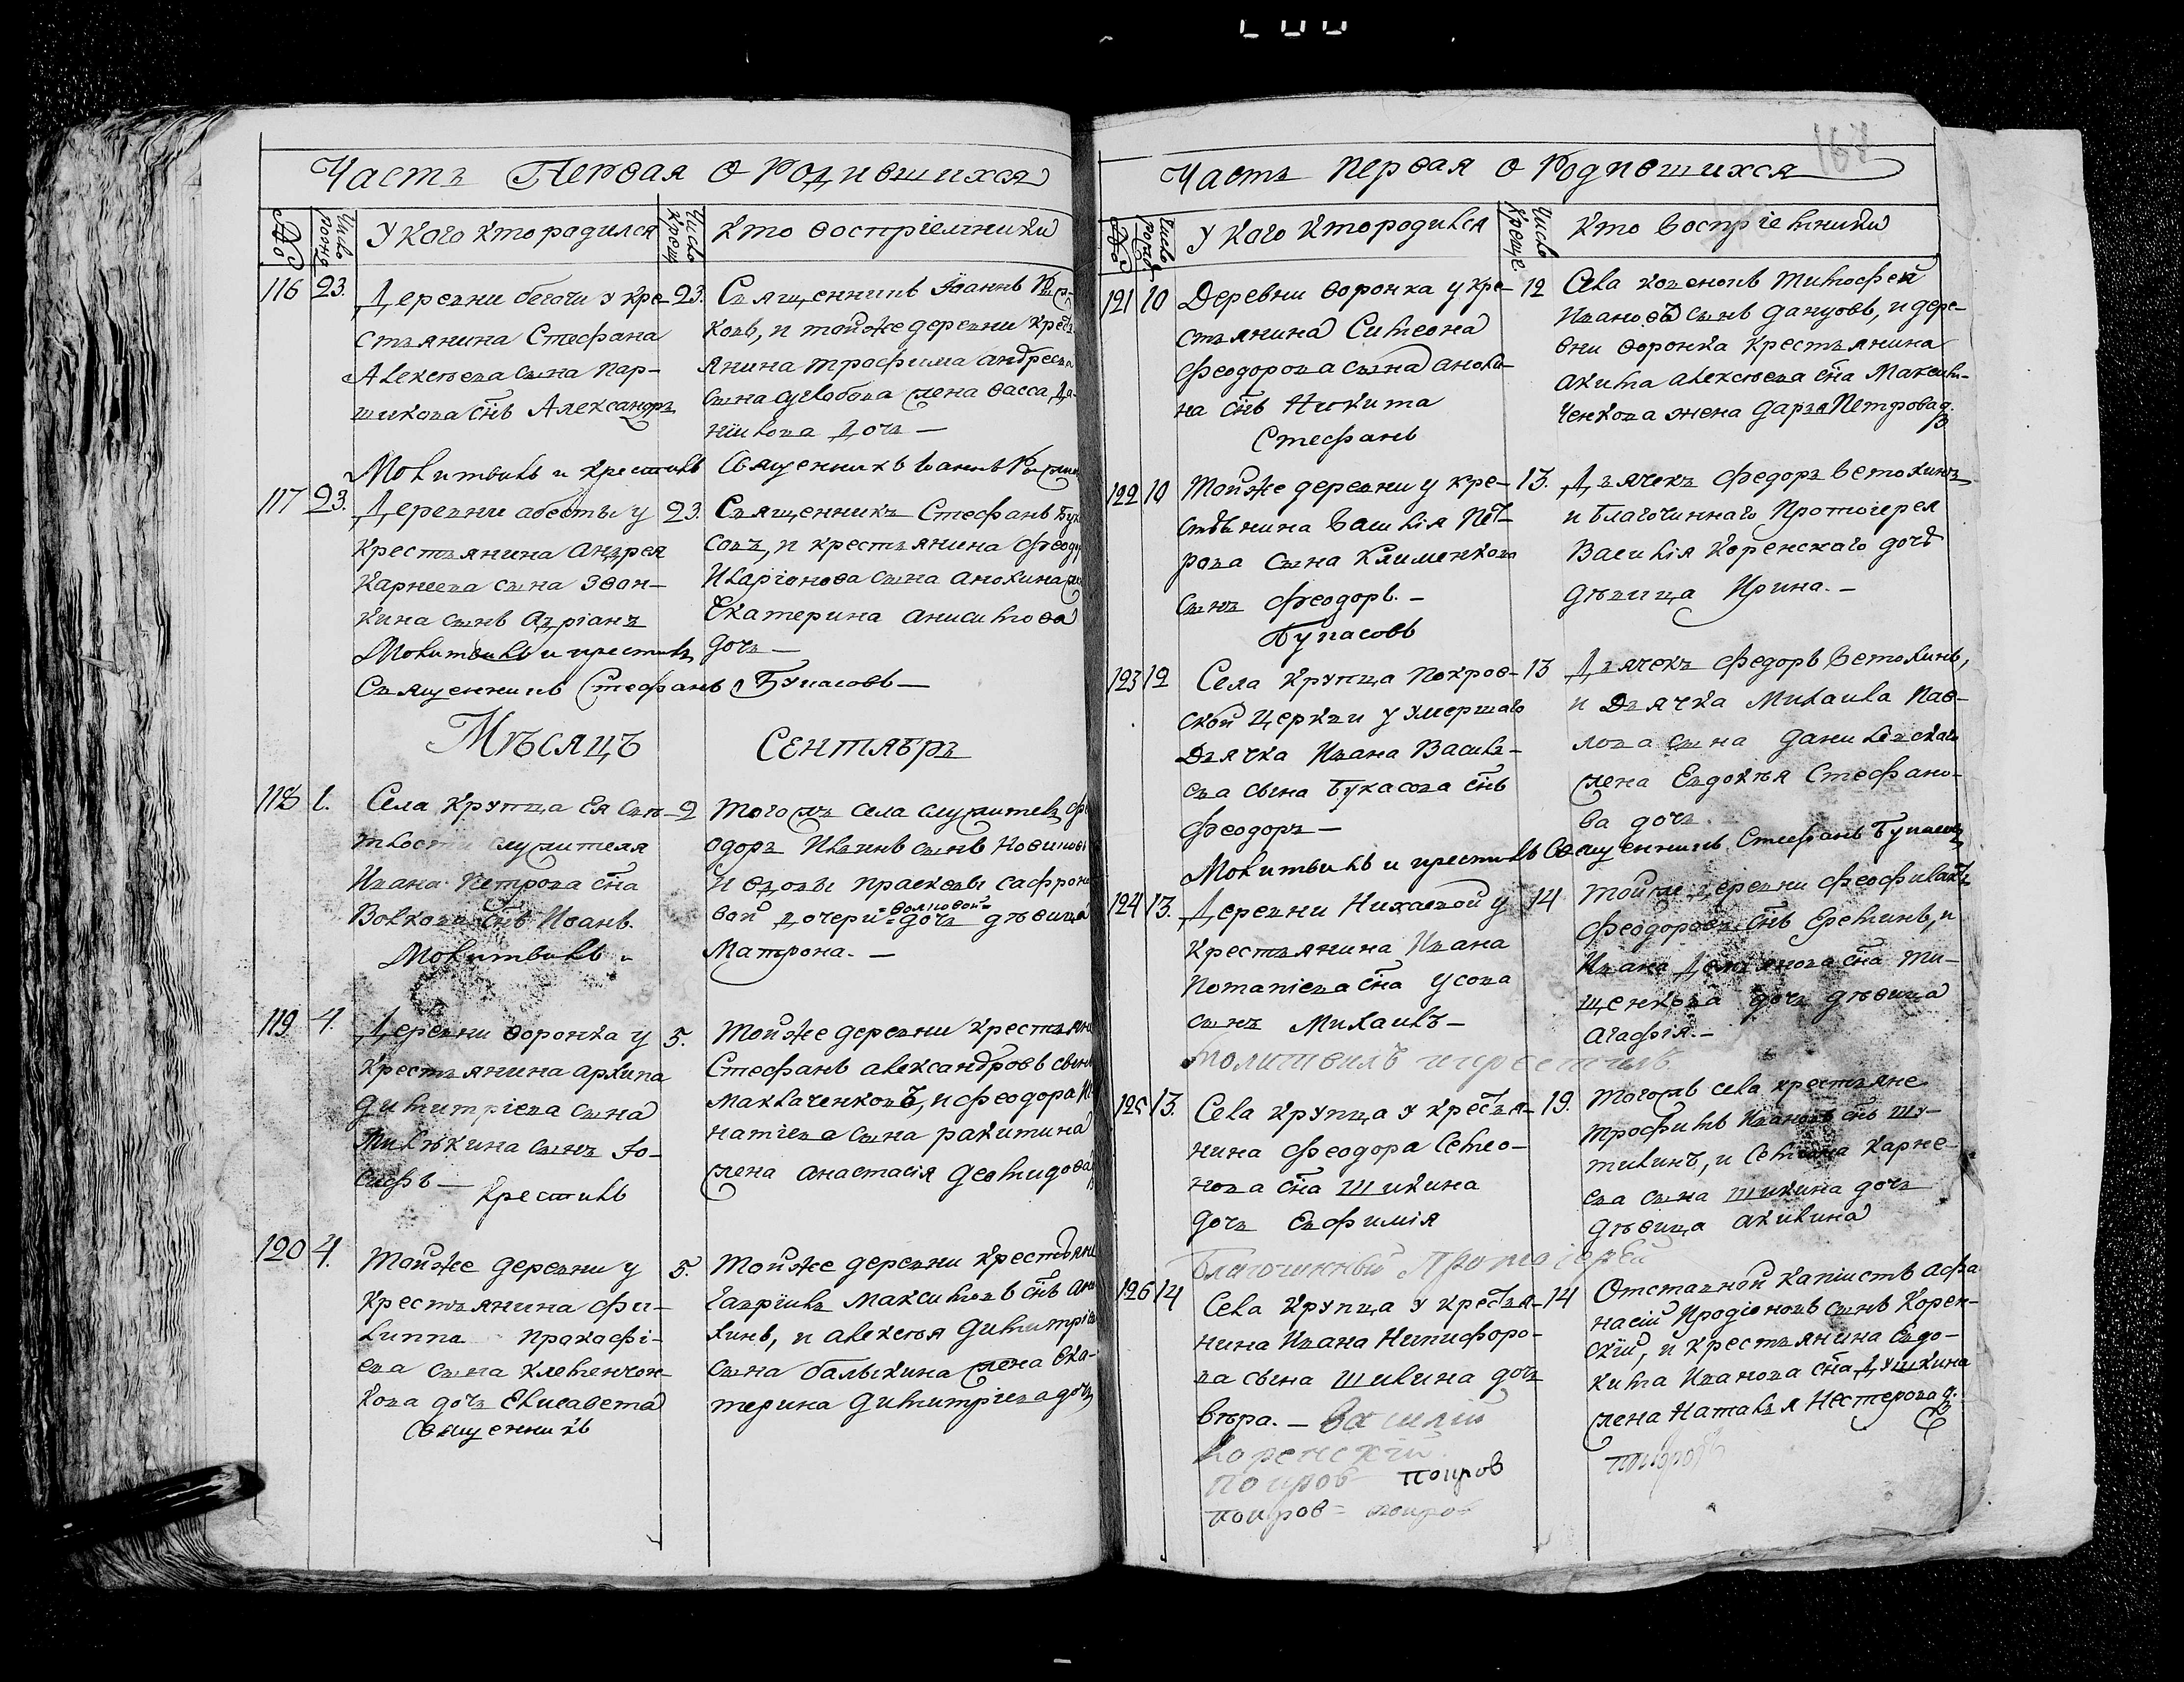 Часть Первая о Родившихся
№
Число рожд
У Каго кто радился
Число крещ
Кто воспрiемники
116 23. Деревни бегочи у кре-
стьянина Стефана
Алексѣева сына пар-
шикова снъ Александръ
23. Священникъ Iоаннъ
ковъ, и тойже деревни крест
янина трофима андреева
сына жена васса Да-
ниилова дочь —
Молитвилъ и крестилъ Священникъ Iоаннъ
117 23. Деревни у
крестьянина андрея
Карнеева сына звон-
кина сынъ адрiанъ
23. Священникъ Стефанъ Бука
совъ, и крестьянина феод
Иларiонова сына анохина
Екатерина анисимова
дочь —
Молитвилъ и крестилъ
Священникъ Стефанъ Букасовъ —
Мѣсяцъ Сентябрь
118 1. Села Крупца Ея Свѣ-
тлости служителя
Ивана Петрова сна
Волкова снъ Иоанъ.
2 Тогожъ села служитель фе
одоръ Иванъ сынъ Новиковъ
и вдовы прасковьи сафроно
вой дочери =волковой= дочь дѣвица
Матрона. —
Молитвилъ и
119 4. Деревни воронка у
крестьянина архипа
Димитрiева сына
сынъ Iо-
сифъ —
5. Тойже деревни крестьянинъ
Стефанъ александровъ сынъ
Маклаченковъ, и феодора Иг
натiева сына ракитина
жена анастасiя Деомидова
Крестилъ
120 4. Тойже деревни у
крестьянина фи-
липпа пракофi-
ева сына Клеменчон-
кова дочь Елисавета
5. Тойже деревни крестьяни
Гаврiилъ Максимовъ снъ ано
хинъ, и алексѣя Димитрiева
сына балыкина жена Ека-
терина Димитрiева дочь
Священникъ
Часть первая о Родившихся
№
Число рожд.
У Каго кто родился
Число крещ.
Кто воспрiемники
121 10 Деревни воронка у кре-
стьянина Симеона
Феодорова сына анохи-
на снъ Никита
12 Села Тимофей
Ивановъ сынъ данцовъ, и дере-
вни воронка крестьянина
акима алексѣева сна Максим-
ченкова жена дарья Петрова д.
Стефанъ
122 10 Тойже деревни у кре-
стьянина Василiя Пет-
рова сына Клименкова
сынъ Феодоръ. —
13. Дьячекъ Федоръ Ветохинъ
и Благочиннаго Протоиерея
Василiя Коренскаго дочь
дѣвица Ирина. —
Букасовъ
123 12 Села Крупца Покров-
ской церкви у умершаго
Дьячка Ивана Василь-
ева сына Букасова снъ
Феодоръ —
13 Дьячекъ Федоръ Ветохинъ,
и Дьячка Михаила Пав-
лова сына
жена Евдокѣя Стефано-
ва дочь
Молитвилъ и крестилъ Священникъ Стефанъ Букасовъ
124 13. Деревни Нихаевой у
крестьянина Ивана
Потапiева сна усова
сынъ Михаилъ —
14 Тойже деревни Феофилактъ
Феодоровъ снъ Еремин, и
Ивана Демьянова сна Ти-
щенкова дочь дѣвица
агафiя. —
Молитвилъ и крестилъ
125 13. Села Крупца у крестья-
нина Феодора Семео-
нова сна Шикина
дочь Евфимiя
19. Тогожъ села крестьяне
Трофимъ Ивановъ снъ Шу-
тикинъ, и Семiона Карне
ева сына Шикина дочь
дѣвица акилина
Благочинный Протоiерей
126 14 Села Крупца у крестья-
нина Ивана Никифоро-
ва сына Шикина дочь
Вѣра. —
14 Отставной капiистъ афа
насiй Иродiоновъ сынъ Корен-
скiй, и крестьянина Евдо-
кима Иванова сна Душкина
жена Наталья Нестерова д.
Василiй
Коренскiй
покров покров покров
покров = покров